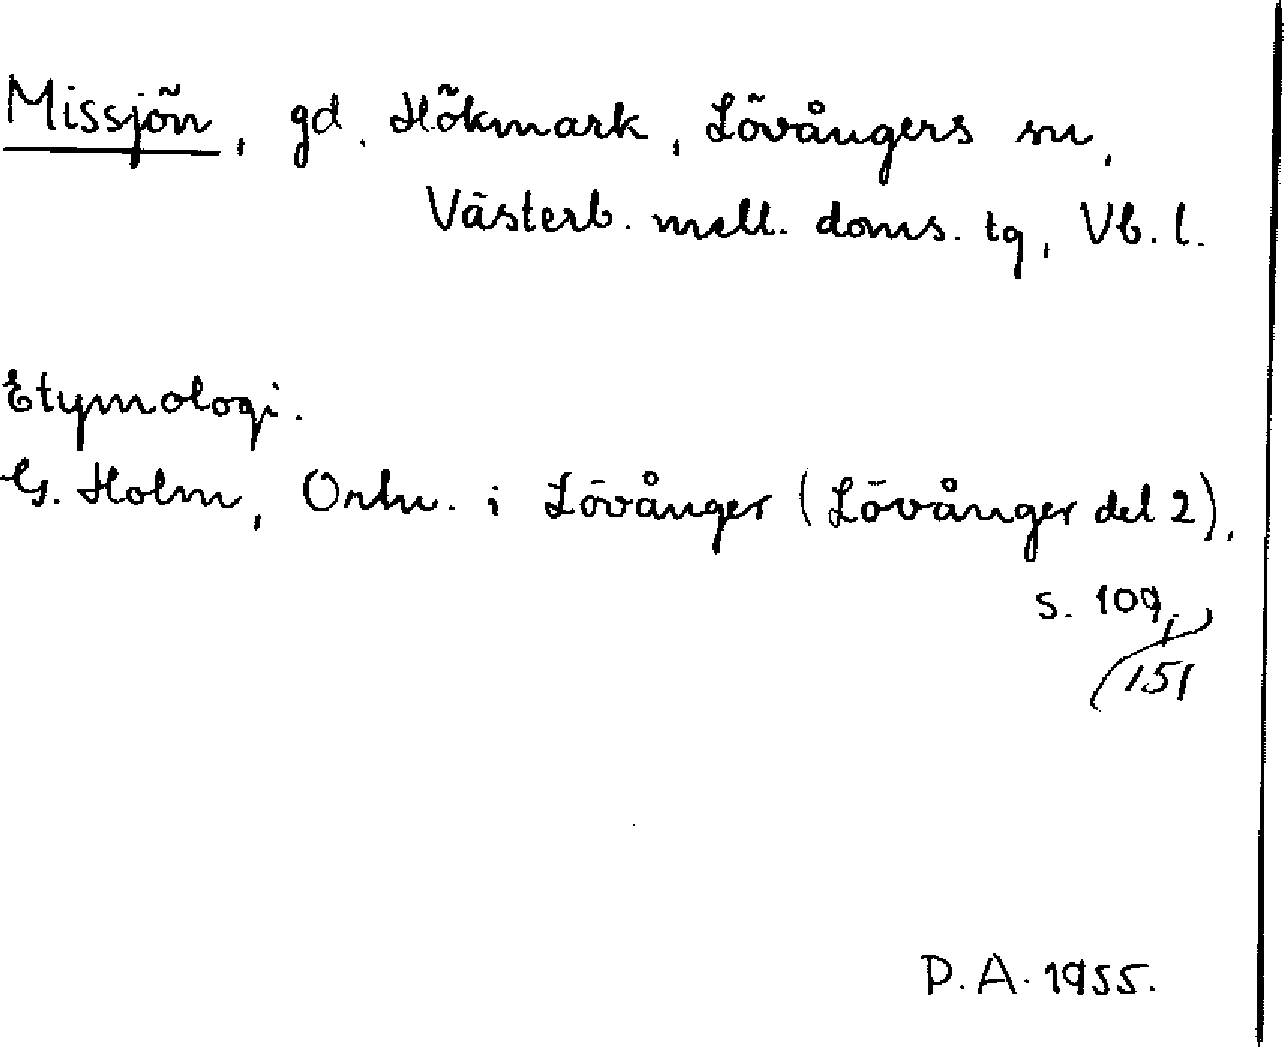 Missjön, gd. Hökmark, Lövångers sn,
Västerb. mell. doms. tg, Vb. l.
Etymologi.
G. Holm, Ortn. i Lövånger (Lövånger del 2),
s. 109,
151
D. A. 1955.